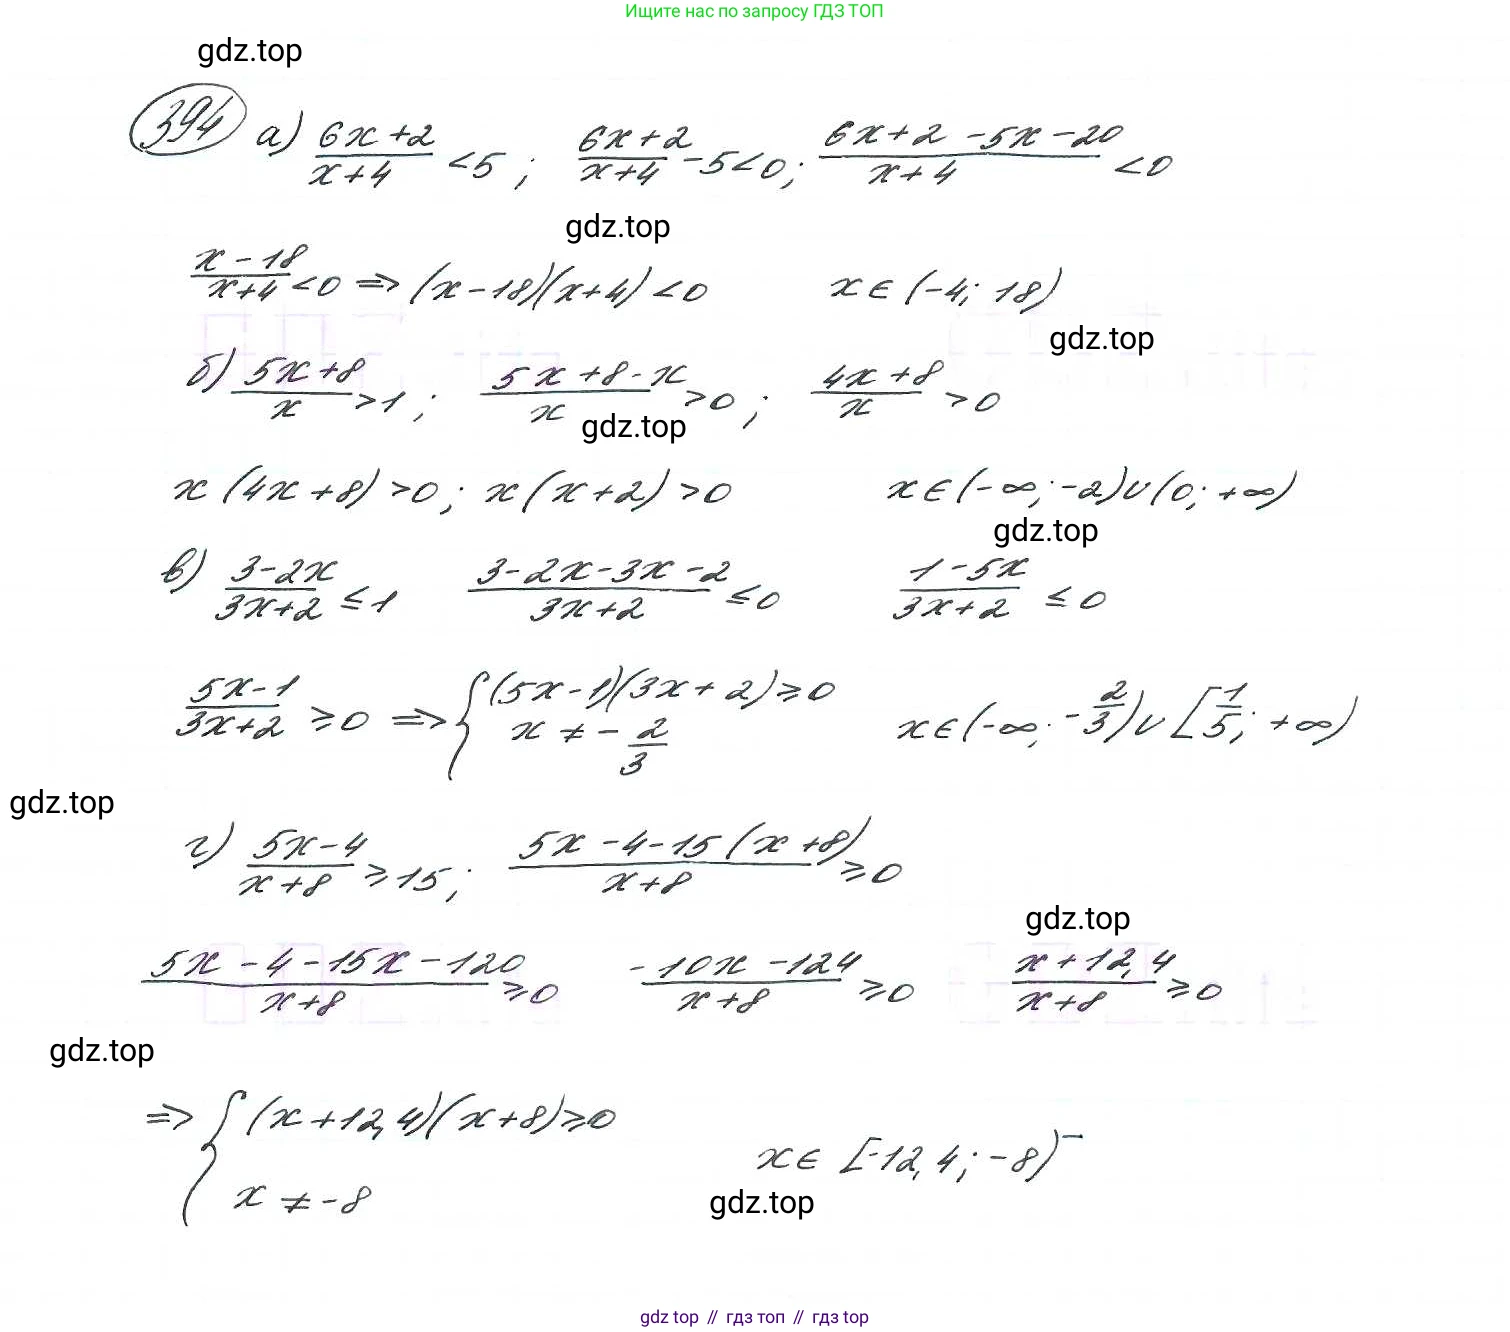 Ищите нас по запросу ГДЗ ТОП
gdz.top
394 а) (6x+2)/(x+4) <5; (6x+2)/(x+4) -5<0; (6x+2-5x-20)/(x+4) <0
gdz.top
(x-18)/(x+4) <0 => (x-18)(x+4)<0 x∈(-4; 18)
gdz.top
б) (5x+8)/x >1; (5x+8-x)/x >0; (4x+8)/x >0
gdz.top
x(4x+8)>0; x(x+2)>0 x∈(-∞; -2)∪(0; +∞)
gdz.top
в) (3-2x)/(3x+2) ≤1 (3-2x-3x-2)/(3x+2) ≤0 (1-5x)/(3x+2) ≤0
(5x-1)/(3x+2) ≥0 => { (5x-1)(3x+2)≥0
x ≠ -2/3 x∈(-∞; -2/3)∪[1/5; +∞)
gdz.top
г) (5x-4)/(x+8) ≥15; (5x-4-15(x+8))/(x+8) ≥0
gdz.top
(5x-4-15x-120)/(x+8) ≥0 (-10x-124)/(x+8) ≥0 (x+12,4)/(x+8) ≥0
gdz.top
=> { (x+12,4)(x+8)≥0
x ≠ -8 x∈ [-12,4; -8)
gdz.top
gdz top // гдз топ // gdz top